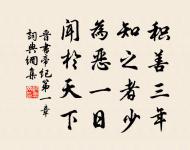 积善三年
知之者少
為恶一日
闻於天下
晉書帝紀第一章
詞典網集